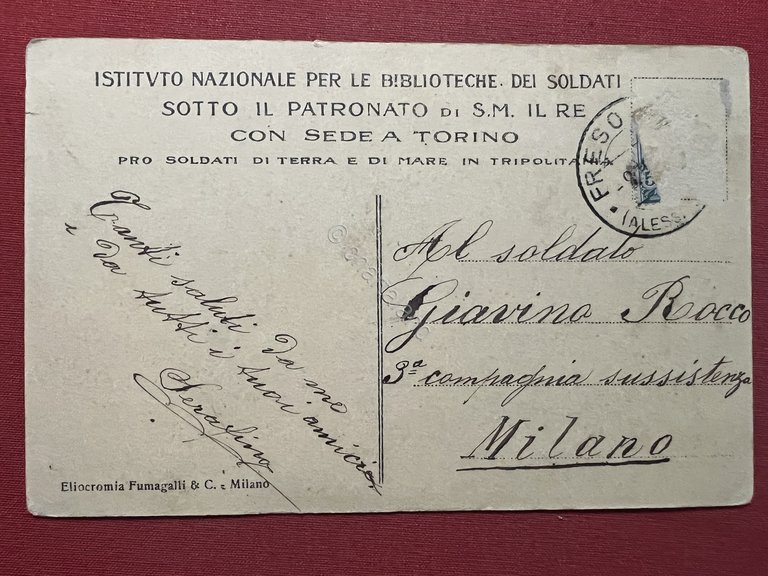 ISTITVTO NAZIONALE PER LE BIBLIOTECHE DEI SOLDATI
SOTTO IL PATRONATO DI S.M. IL RE
CON SEDE A TORINO
PRO SOLDATI DI TERRA E DI MARE IN TRIPOLITANIA
FRESO
(ALESS.
Tanti saluti da me
e da tutti i tuoi amici
Serafino
Al soldato
Giavino Rocco
3ª compagnia sussistenza
Milano
Eliocromia Fumagalli & C. - Milano